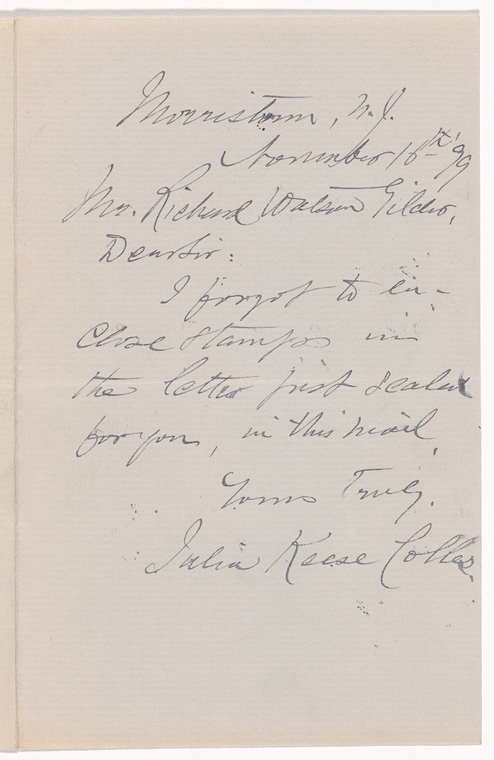 Morristown, N.J.
November 16th '99
Mr. Richard Watson Gilder,
Dear Sir:
I forgot to en-
close stamps in
the letter just sealed
for you, in this mail,
Yours Truly,
Julia Keese Colles